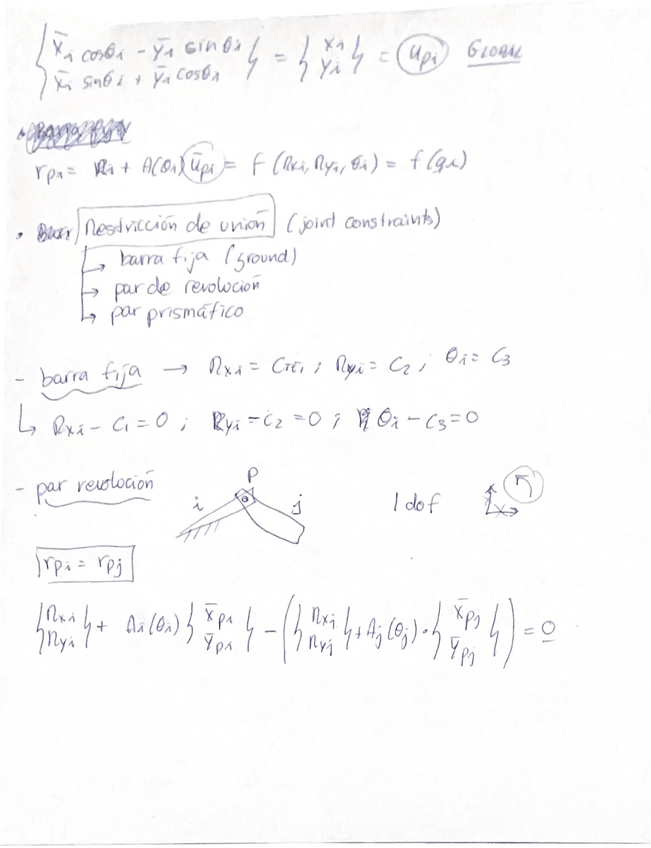 { x̄i cosθi − ȳi sinθi ; x̄i sinθi + ȳi cosθi } = { xi ; yi } = upi Global
rpi = Ri + A(θi) ūpi = f (Rxi, Ryi, θi) = f(qi)
• Restricción de unión (joint constraints)
↳ barra fija (ground)
↳ par de revolución
↳ par prismático
- barra fija → Rxi = Cte1 ; Ryi = C2 ; θi = C3
↳ Rxi − C1 = 0 ; Ryi − C2 = 0 ; θi − C3 = 0
- par revolución
P
i j 1 dof
rpi = rpj
{ Rxi ; Ryi } + Ai(θi) { x̄pi ; ȳpi } − ( { Rxj ; Ryj } + Aj(θj) · { x̄pj ; ȳpj } ) = 0